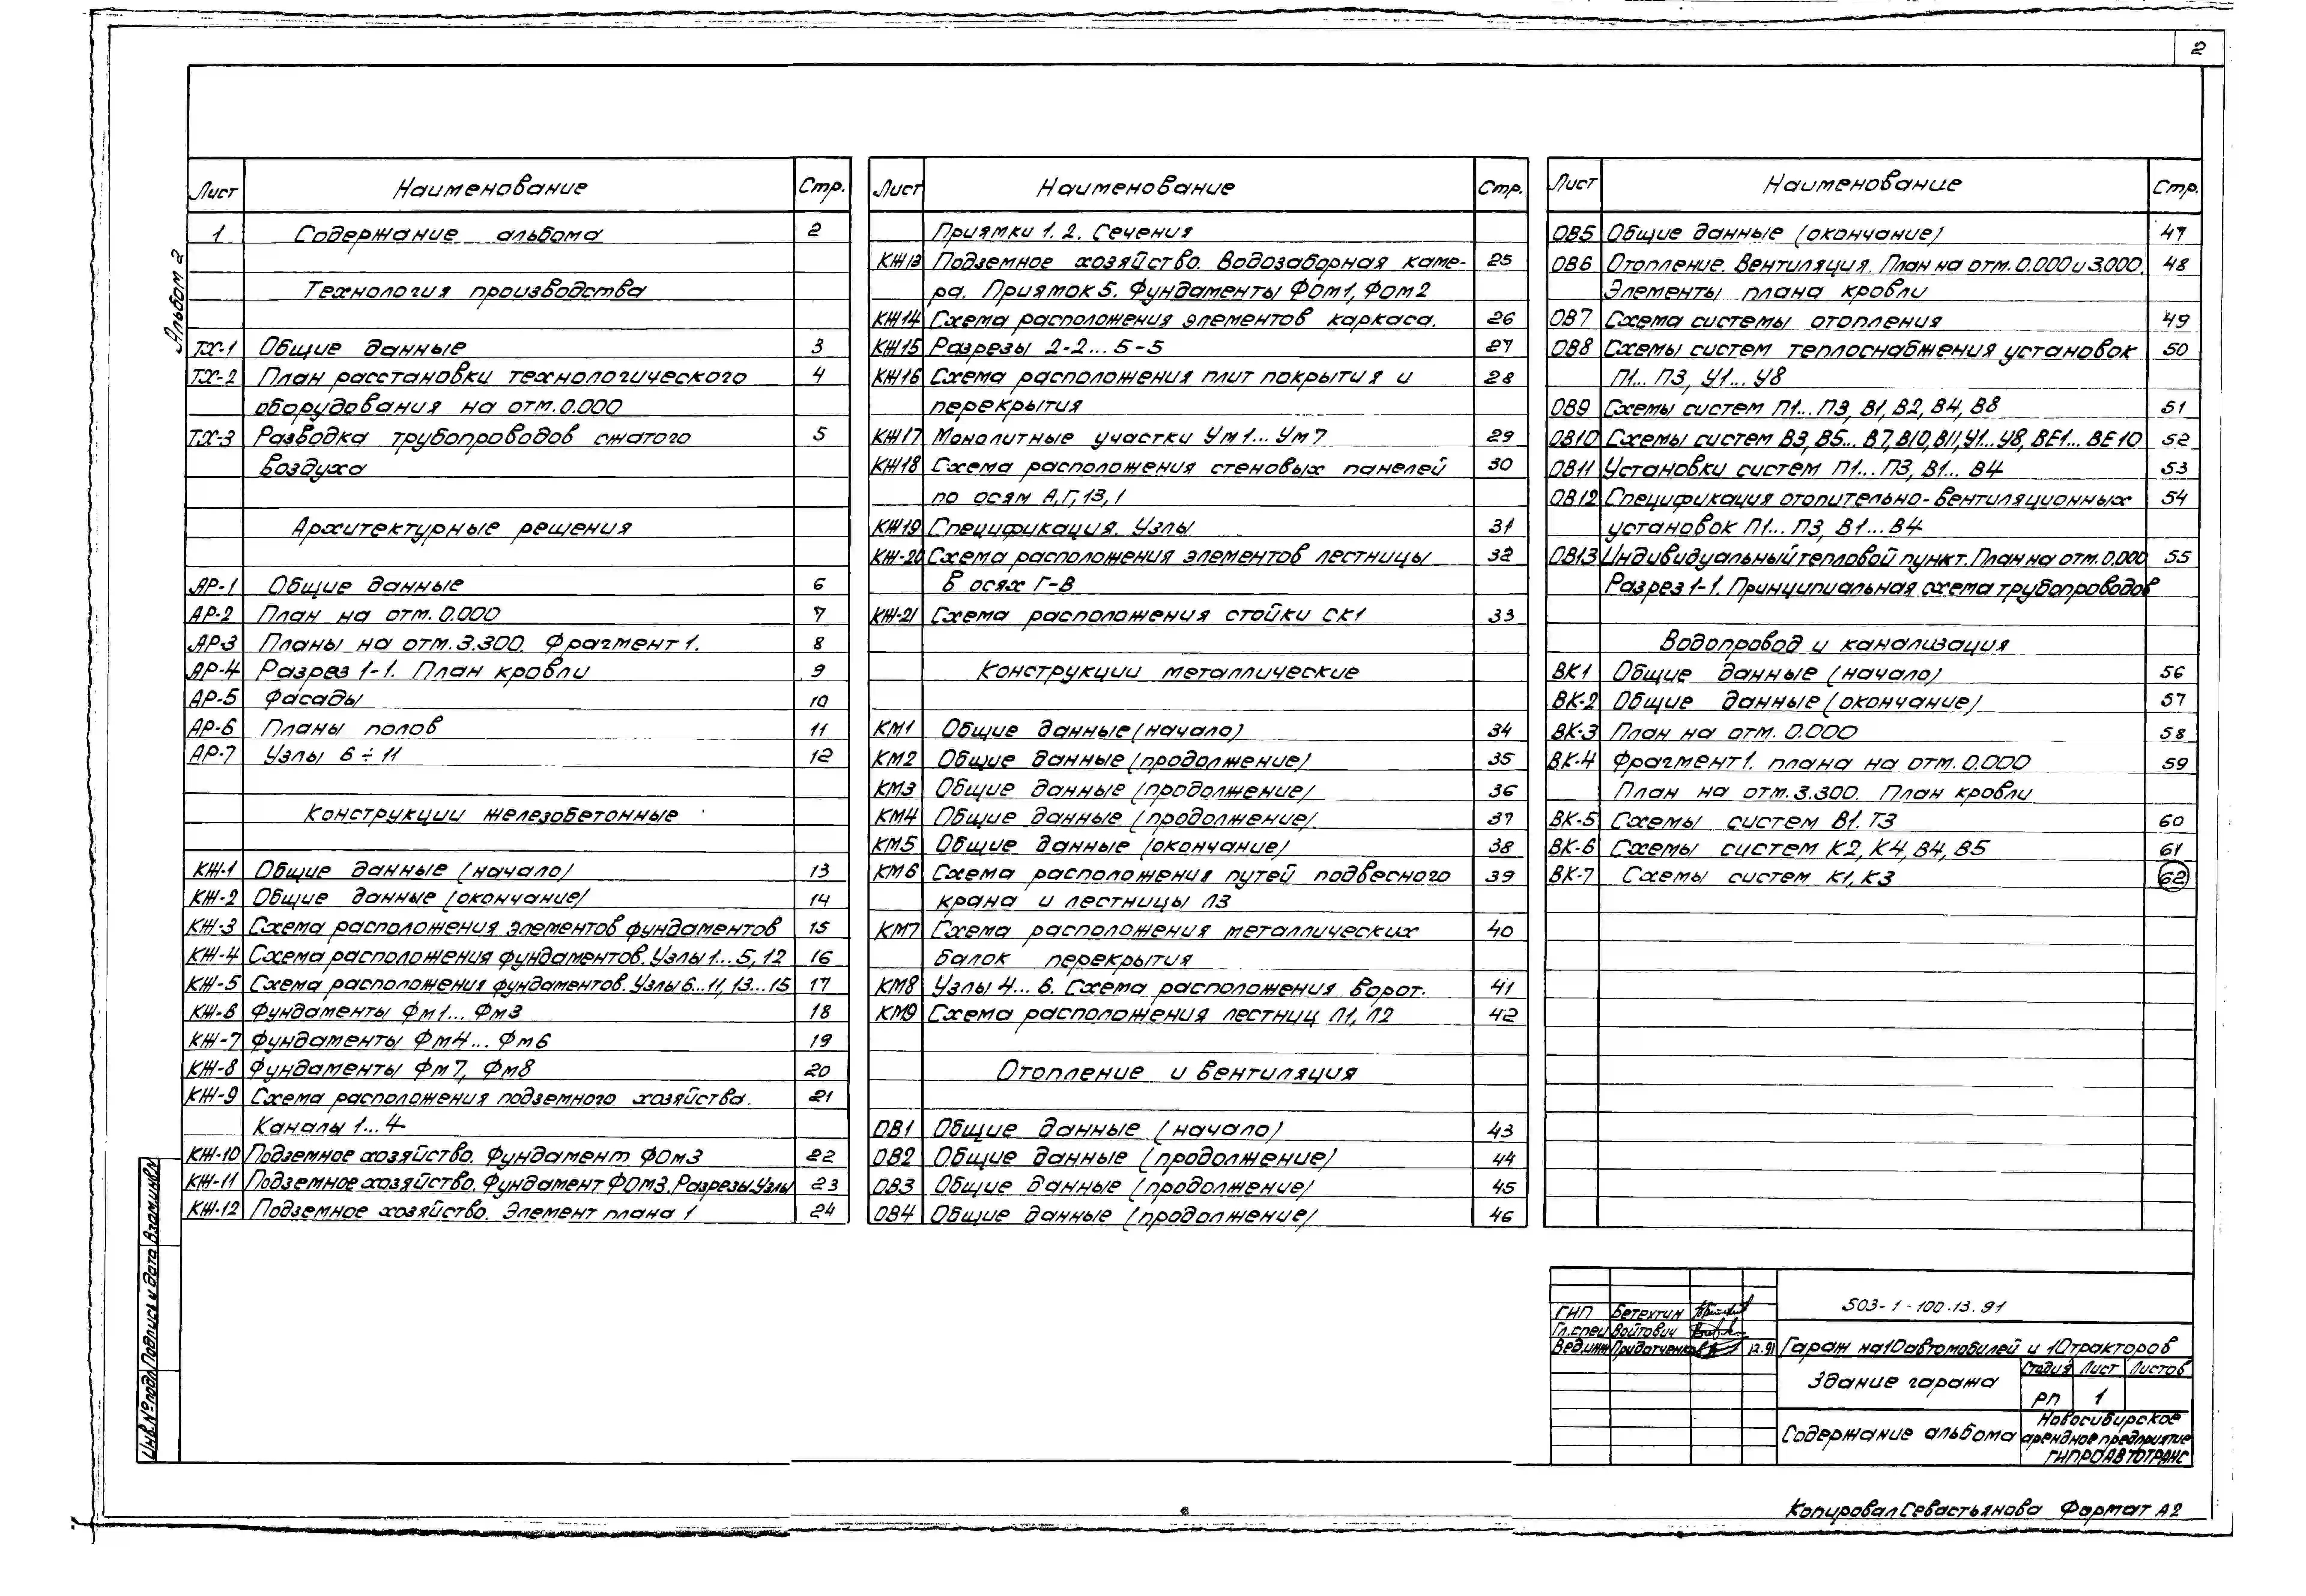 2
Альбом 2
Лист Наименование Стр.
1 Содержание альбома 2
Технология производства
ТХ-1 Общие данные 3
ТХ-2 План расстановки технологического 4
оборудования на отм.0.000
ТХ-3 Разводка трубопроводов сжатого 5
воздуха
Архитектурные решения
АР-1 Общие данные 6
АР-2 План на отм. 0.000 7
АР-3 Планы на отм.3.300. Фрагмент 1. 8
АР-4 Разрез 1-1. План кровли 9
АР-5 Фасады 10
АР-6 Планы полов 11
АР-7 Узлы 6÷11 12
Конструкции железобетонные
КЖ-1 Общие данные (начало) 13
КЖ-2 Общие данные (окончание) 14
КЖ-3 Схема расположения элементов фундаментов 15
КЖ-4 Схема расположения фундаментов. Узлы 1...5, 12 16
КЖ-5 Схема расположения фундаментов. Узлы 6...11, 13...15 17
КЖ-6 Фундаменты Фм1... Фм3 18
КЖ-7 Фундаменты Фм4... Фм6 19
КЖ-8 Фундаменты Фм7, Фм8 20
КЖ-9 Схема расположения подземного хозяйства. 21
Каналы 1...4
КЖ-10 Подземное хозяйство. Фундамент ФОм3 22
КЖ-11 Подземное хозяйство. Фундамент ФОм3. Разрезы. Узлы 23
КЖ-12 Подземное хозяйство. Элемент плана 1 24
Лист Наименование Стр.
Приямки 1. 2. Сечения
КЖ13 Подземное хозяйство. Водозаборная каме- 25
ра. Приямок 5. Фундаменты ФОм1, ФОм2
КЖ14 Схема расположения элементов каркаса. 26
КЖ15 Разрезы 2-2...5-5 27
КЖ16 Схема расположения плит покрытия и 28
перекрытия
КЖ17 Монолитные участки Ум1... Ум7 29
КЖ18 Схема расположения стеновых панелей 30
по осям А, Г, 13, 1
КЖ19 Спецификация. Узлы 31
КЖ-20 Схема расположения элементов лестницы 32
в осях Г-В
КЖ-21 Схема расположения стойки СК1 33
Конструкции металлические
КМ1 Общие данные (начало) 34
КМ2 Общие данные (продолжение) 35
КМ3 Общие данные (продолжение) 36
КМ4 Общие данные (продолжение) 37
КМ5 Общие данные (окончание) 38
КМ6 Схема расположения путей подвесного 39
крана и лестницы Л3
КМ7 Схема расположения металлических 40
балок перекрытия
КМ8 Узлы 4...6. Схема расположения ворот. 41
КМ9 Схема расположения лестниц Л1, Л2 42
Отопление и вентиляция
ОВ1 Общие данные (начало) 43
ОВ2 Общие данные (продолжение) 44
ОВ3 Общие данные (продолжение) 45
ОВ4 Общие данные (продолжение) 46
Лист Наименование Стр.
ОВ5 Общие данные (окончание) 47
ОВ6 Отопление. Вентиляция. План на отм. 0.000 и 3.000. 48
Элементы плана кровли
ОВ7 Схема системы отопления 49
ОВ8 Схемы систем теплоснабжения установок 50
П1... П3, У1... У8
ОВ9 Схемы систем П1...П3, В1, В2, В4, В8 51
ОВ10 Схемы систем В3, В5... В7, В10, В11, У1...У8, ВЕ1... ВЕ10 52
ОВ11 Установки систем П1...П3, В1... В4 53
ОВ12 Спецификация отопительно-вентиляционных 54
установок П1... П3, В1...В4
ОВ13 Индивидуальный тепловой пункт. План на отм. 0.000 55
Разрез 1-1. Принципиальная схема трубопроводов
Водопровод и канализация
ВК1 Общие данные (начало) 56
ВК-2 Общие данные (окончание) 57
ВК-3 План на отм. 0.000 58
ВК-4 Фрагмент 1. плана на отм. 0.000 59
План на отм. 3.300. План кровли
ВК-5 Схемы систем В1. Т3 60
ВК-6 Схемы систем К2, К4, В4, В5 61
ВК-7 Схемы систем К1, К3 62
Инв.№подл. Подпись и дата Взам.инв.№
503-1-100.13.91
ГИП Бетехтин
Гл.спец Войтович
Вед.инж Придатченко 12.91
Гараж на 10 автомобилей и 10 тракторов
Здание гаража
Стадия Лист Листов
РП 1
Содержание альбома
Новосибирское
арендное предприятие
ГИПРОАВТОТРАНС
Копировал Севастьянова Формат А2